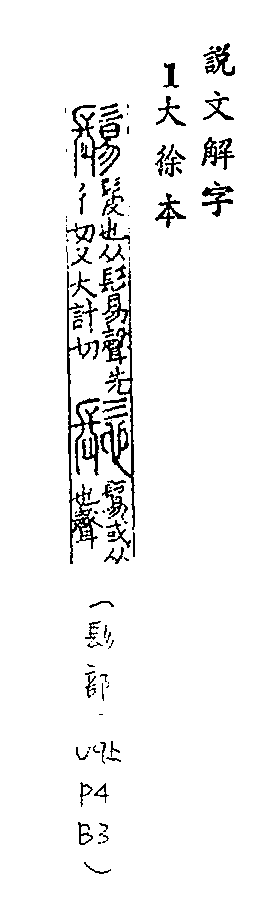 說文解字
1大徐本
鬄
髲也从髟易聲先
彳切又大計切
髢
鬄或从
也聲
(髟部.V9上
P4
B3)